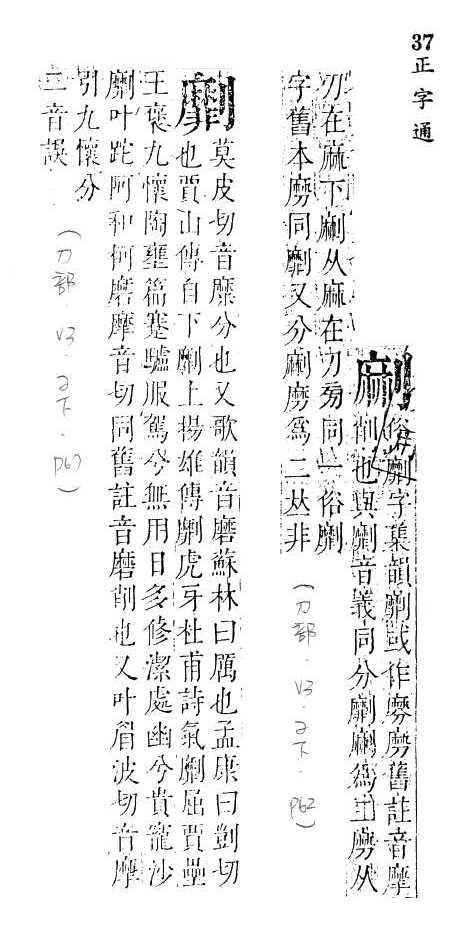 37 正字通
𠠄俗劘字集韻劘或作䃺㔳舊註音摩
削也與劘音義同分劘𠠄為二㔳从
刀在麻下𠠄从麻在刀旁同一俗劘
字舊本㔳同劘又分𠠄㔳為二丛非
(刀部.V3.子下.P62)
劘莫皮切音糜分也又歌韻音磨蘇林曰厲也孟康曰剴切
也賈山傳自下劘上揚雄傳劘虎牙杜甫詩氣劘屈賈壘
王褒九懷陶壅篇蹇驢服駕兮無用日多修潔處幽兮貴寵沙
劘叶跎阿和柯磨摩音切同舊註音磨削也又叶眉波切音摩
引九懷分
二音誤
(刀部.V3.子下.P67)